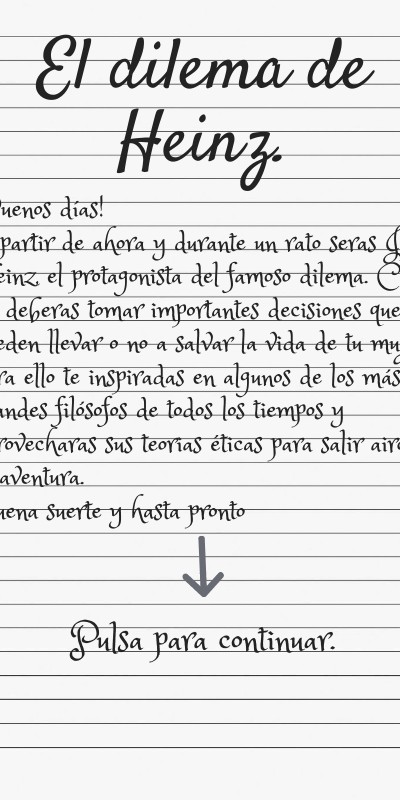 El dilema de
Heinz.
uenos días!
partir de ahora y durante un rato seras
einz, el protagonista del famoso dilema. C
deberas tomar importantes decisiones que
eden llevar o no a salvar la vida de tu mu
ra ello te inspiradas en algunos de los más
andes filósofos de todos los tiempos y
rovecharas sus teorias éticas para salir airo
aventura.
uena suerte y hasta pronto
Pulsa para continuar.